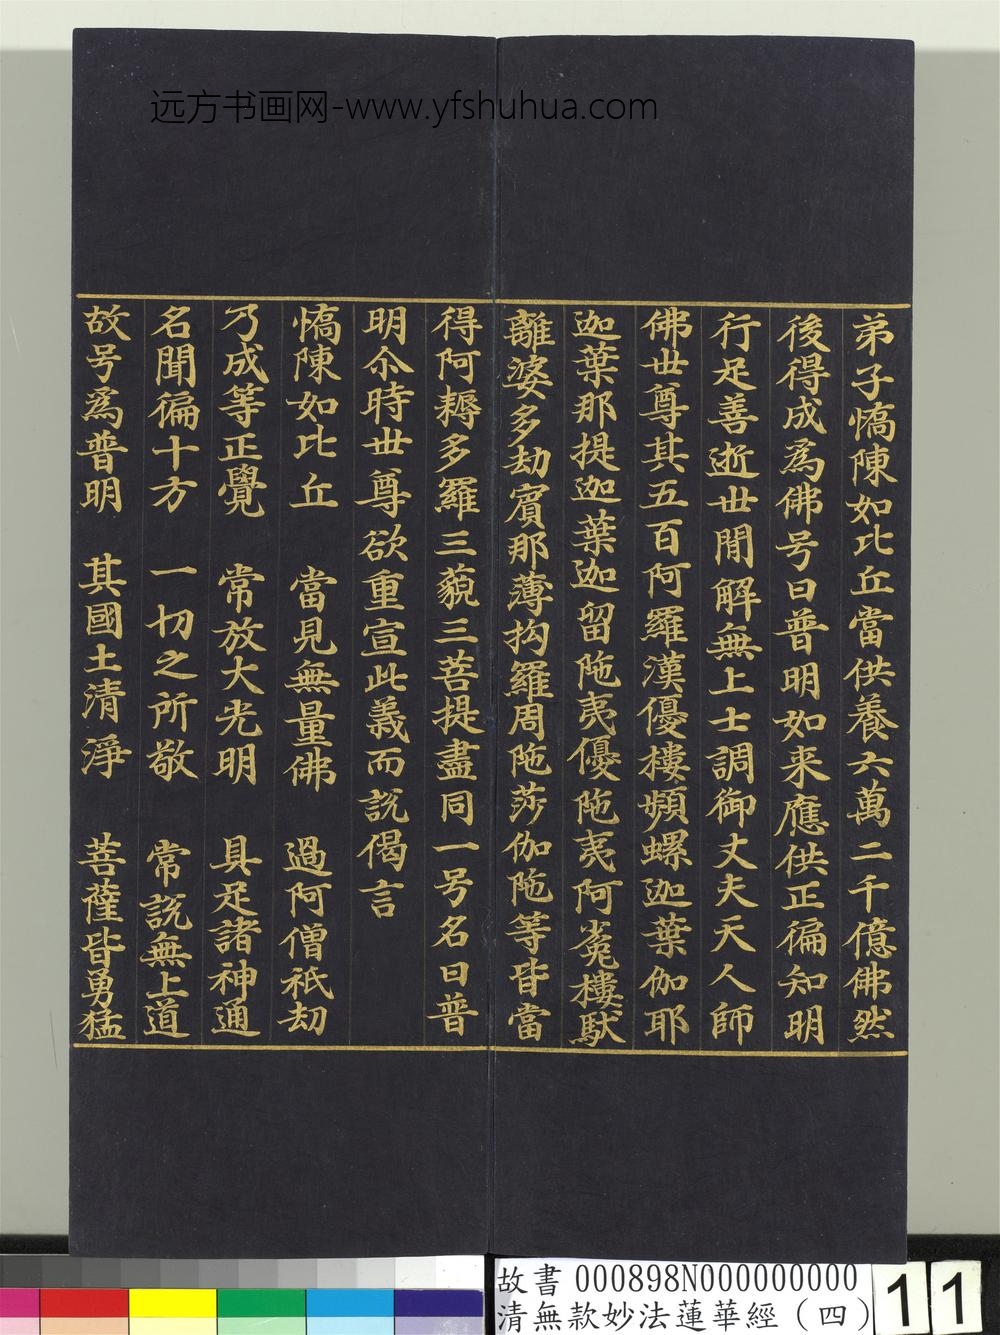 远方书画网-www.yfshuhua.com
弟子憍陳如比丘當供養六萬二千億佛然
後得成為佛号曰普明如来應供正徧知明
行足善逝世間解無上士調御丈夫天人師
佛世尊其五百阿羅漢優樓頻螺迦葉伽耶
迦葉那提迦葉迦留陁夷優陁夷阿㝹樓馱
離婆多劫賓那薄拘羅周陁莎伽陁等皆當
得阿耨多羅三藐三菩提盡同一号名曰普
明尒時世尊欲重宣此義而說偈言
憍陳如比丘　當見無量佛　過阿僧祇劫
乃成等正覺　常放大光明　具足諸神通
名聞徧十方　一切之所敬　常說無上道
故号為普明　其國土清淨　菩薩皆勇猛
故書 000898N000000000
清無款妙法蓮華經（四）
11